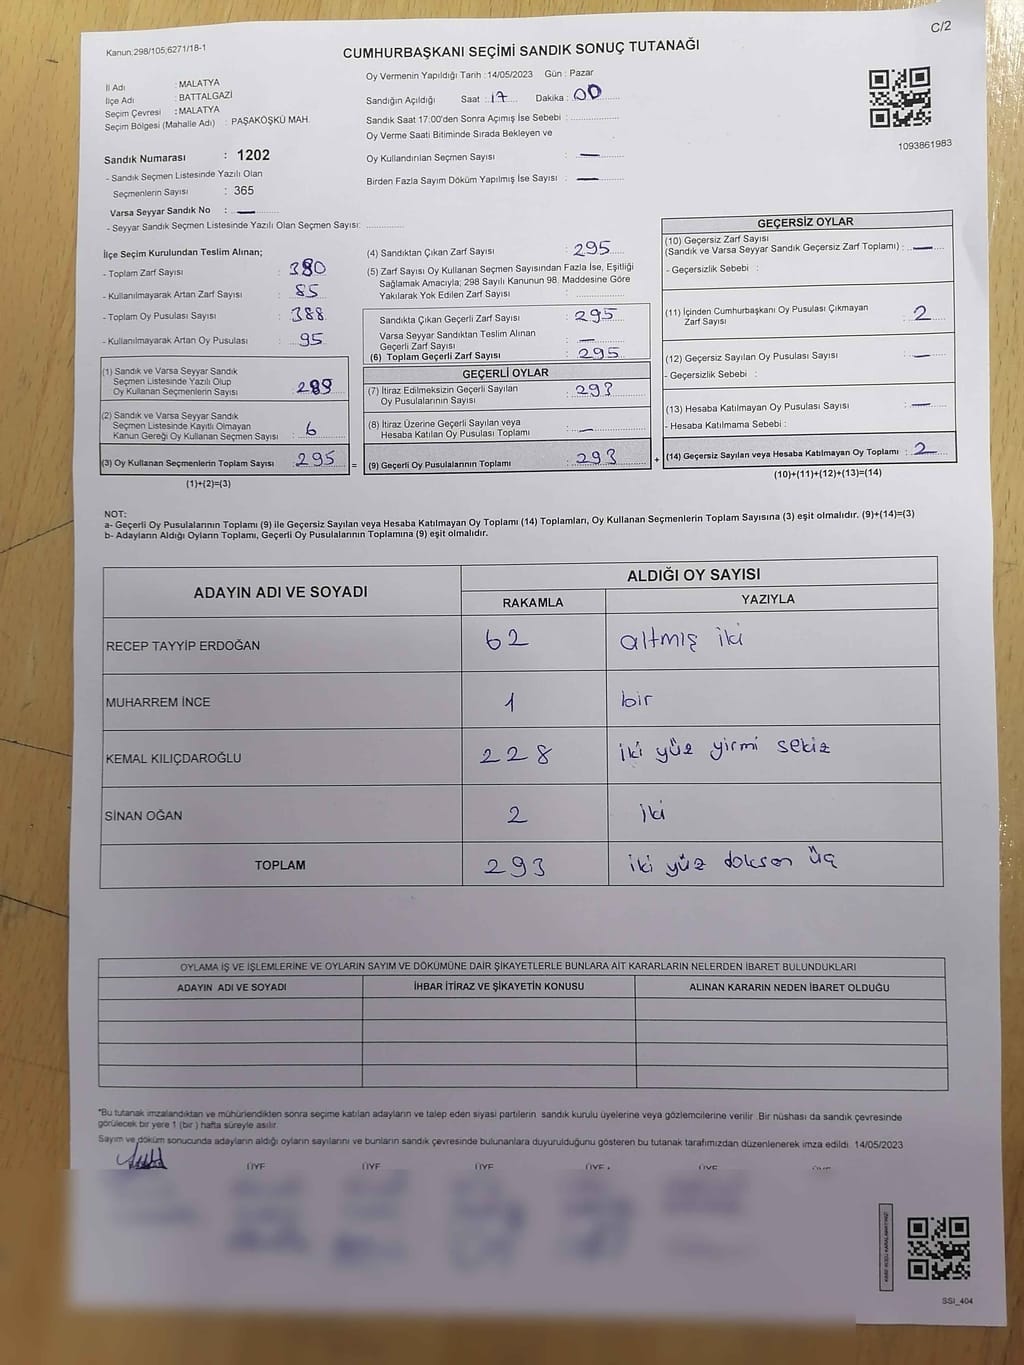 C/2
Kanun.298/105;6271/18-1
CUMHURBAŞKANI SEÇİMİ SANDIK SONUÇ TUTANAĞI
İl Adı : MALATYA
İlçe Adı : BATTALGAZİ
Seçim Çevresi : MALATYA
Seçim Bölgesi (Mahalle Adı) : PAŞAKÖŞKÜ MAH.
Oy Vermenin Yapıldığı Tarih : 14/05/2023 Gün : Pazar
Sandığın Açıldığı Saat : 17 Dakika : 00
Sandık Saat 17:00'den Sonra Açımış İse Sebebi :
Oy Verme Saati Bitiminde Sırada Bekleyen ve
Oy Kullandırılan Seçmen Sayısı : —
Birden Fazla Sayım Döküm Yapılmış İse Sayısı : —
1093861983
Sandık Numarası : 1202
- Sandık Seçmen Listesinde Yazılı Olan
Seçmenlerin Sayısı : 365
Varsa Seyyar Sandık No : —
- Seyyar Sandık Seçmen Listesinde Yazılı Olan Seçmen Sayısı:
İlçe Seçim Kurulundan Teslim Alınan;
- Toplam Zarf Sayısı : 380
- Kullanılmayarak Artan Zarf Sayısı : 85
- Toplam Oy Pusulası Sayısı : 388
- Kullanılmayarak Artan Oy Pusulası : 95
(1) Sandık ve Varsa Seyyar Sandık
Seçmen Listesinde Yazılı Olup
Oy Kullanan Seçmenlerin Sayısı : 289
(2) Sandık ve Varsa Seyyar Sandık
Seçmen Listesinde Kayıtlı Olmayan
Kanun Gereği Oy Kullanan Seçmen Sayısı : 6
(3) Oy Kullanan Seçmenlerin Toplam Sayısı : 295 =
(1)+(2)=(3)
(4) Sandıktan Çıkan Zarf Sayısı : 295
(5) Zarf Sayısı Oy Kullanan Seçmen Sayısından Fazla İse, Eşitliği
Sağlamak Amacıyla; 298 Sayılı Kanunun 98. Maddesine Göre
Yakılarak Yok Edilen Zarf Sayısı :
Sandıkta Çıkan Geçerli Zarf Sayısı : 295
Varsa Seyyar Sandıktan Teslim Alınan
Geçerli Zarf Sayısı : —
(6) Toplam Geçerli Zarf Sayısı : 295
GEÇERLİ OYLAR
(7) İtiraz Edilmeksizin Geçerli Sayılan
Oy Pusulalarının Sayısı : 293
(8) İtiraz Üzerine Geçerli Sayılan veya
Hesaba Katılan Oy Pusulası Toplamı : —
(9) Geçerli Oy Pusulalarının Toplamı : 293 +
GEÇERSİZ OYLAR
(10) Geçersiz Zarf Sayısı
(Sandık ve Varsa Seyyar Sandık Geçersiz Zarf Toplamı) : —
- Geçersizlik Sebebi :
(11) İçinden Cumhurbaşkanı Oy Pusulası Çıkmayan
Zarf Sayısı : 2
(12) Geçersiz Sayılan Oy Pusulası Sayısı : —
- Geçersizlik Sebebi :
(13) Hesaba Katılmayan Oy Pusulası Sayısı : —
- Hesaba Katılmama Sebebi :
(14) Geçersiz Sayılan veya Hesaba Katılmayan Oy Toplamı : 2
(10)+(11)+(12)+(13)=(14)
NOT:
a- Geçerli Oy Pusulalarının Toplamı (9) ile Geçersiz Sayılan veya Hesaba Katılmayan Oy Toplamı (14) Toplamları, Oy Kullanan Seçmenlerin Toplam Sayısına (3) eşit olmalıdır. (9)+(14)=(3)
b- Adayların Aldığı Oyların Toplamı, Geçerli Oy Pusulalarının Toplamına (9) eşit olmalıdır.
ADAYIN ADI VE SOYADI ALDIĞI OY SAYISI
RAKAMLA YAZIYLA
RECEP TAYYİP ERDOĞAN 62 altmış iki
MUHARREM İNCE 1 bir
KEMAL KILIÇDAROĞLU 228 iki yüz yirmi sekiz
SİNAN OĞAN 2 iki
TOPLAM 293 iki yüz doksan üç
OYLAMA İŞ VE İŞLEMLERİNE VE OYLARIN SAYIM VE DÖKÜMÜNE DAİR ŞİKAYETLERLE BUNLARA AİT KARARLARIN NELERDEN İBARET BULUNDUKLARI
ADAYIN ADI VE SOYADI İHBAR İTİRAZ VE ŞİKAYETİN KONUSU ALINAN KARARIN NEDEN İBARET OLDUĞU
*Bu tutanak imzalandıktan ve mühürlendikten sonra seçime katılan adayların ve talep eden siyasi partilerin sandık kurulu üyelerine veya gözlemcilerine verilir. Bir nüshası da sandık çevresinde
görülecek bir yere 1 (bir ) hafta süreyle asılır.
Sayım ve döküm sonucunda adayların aldığı oyların sayılarını ve bunların sandık çevresinde bulunanlara duyurulduğunu gösteren bu tutanak tarafımızdan düzenlenerek imza edildi. 14/05/2023
ÜYE ÜYE ÜYE ÜYE ÜYE ÜYE
SSI_404